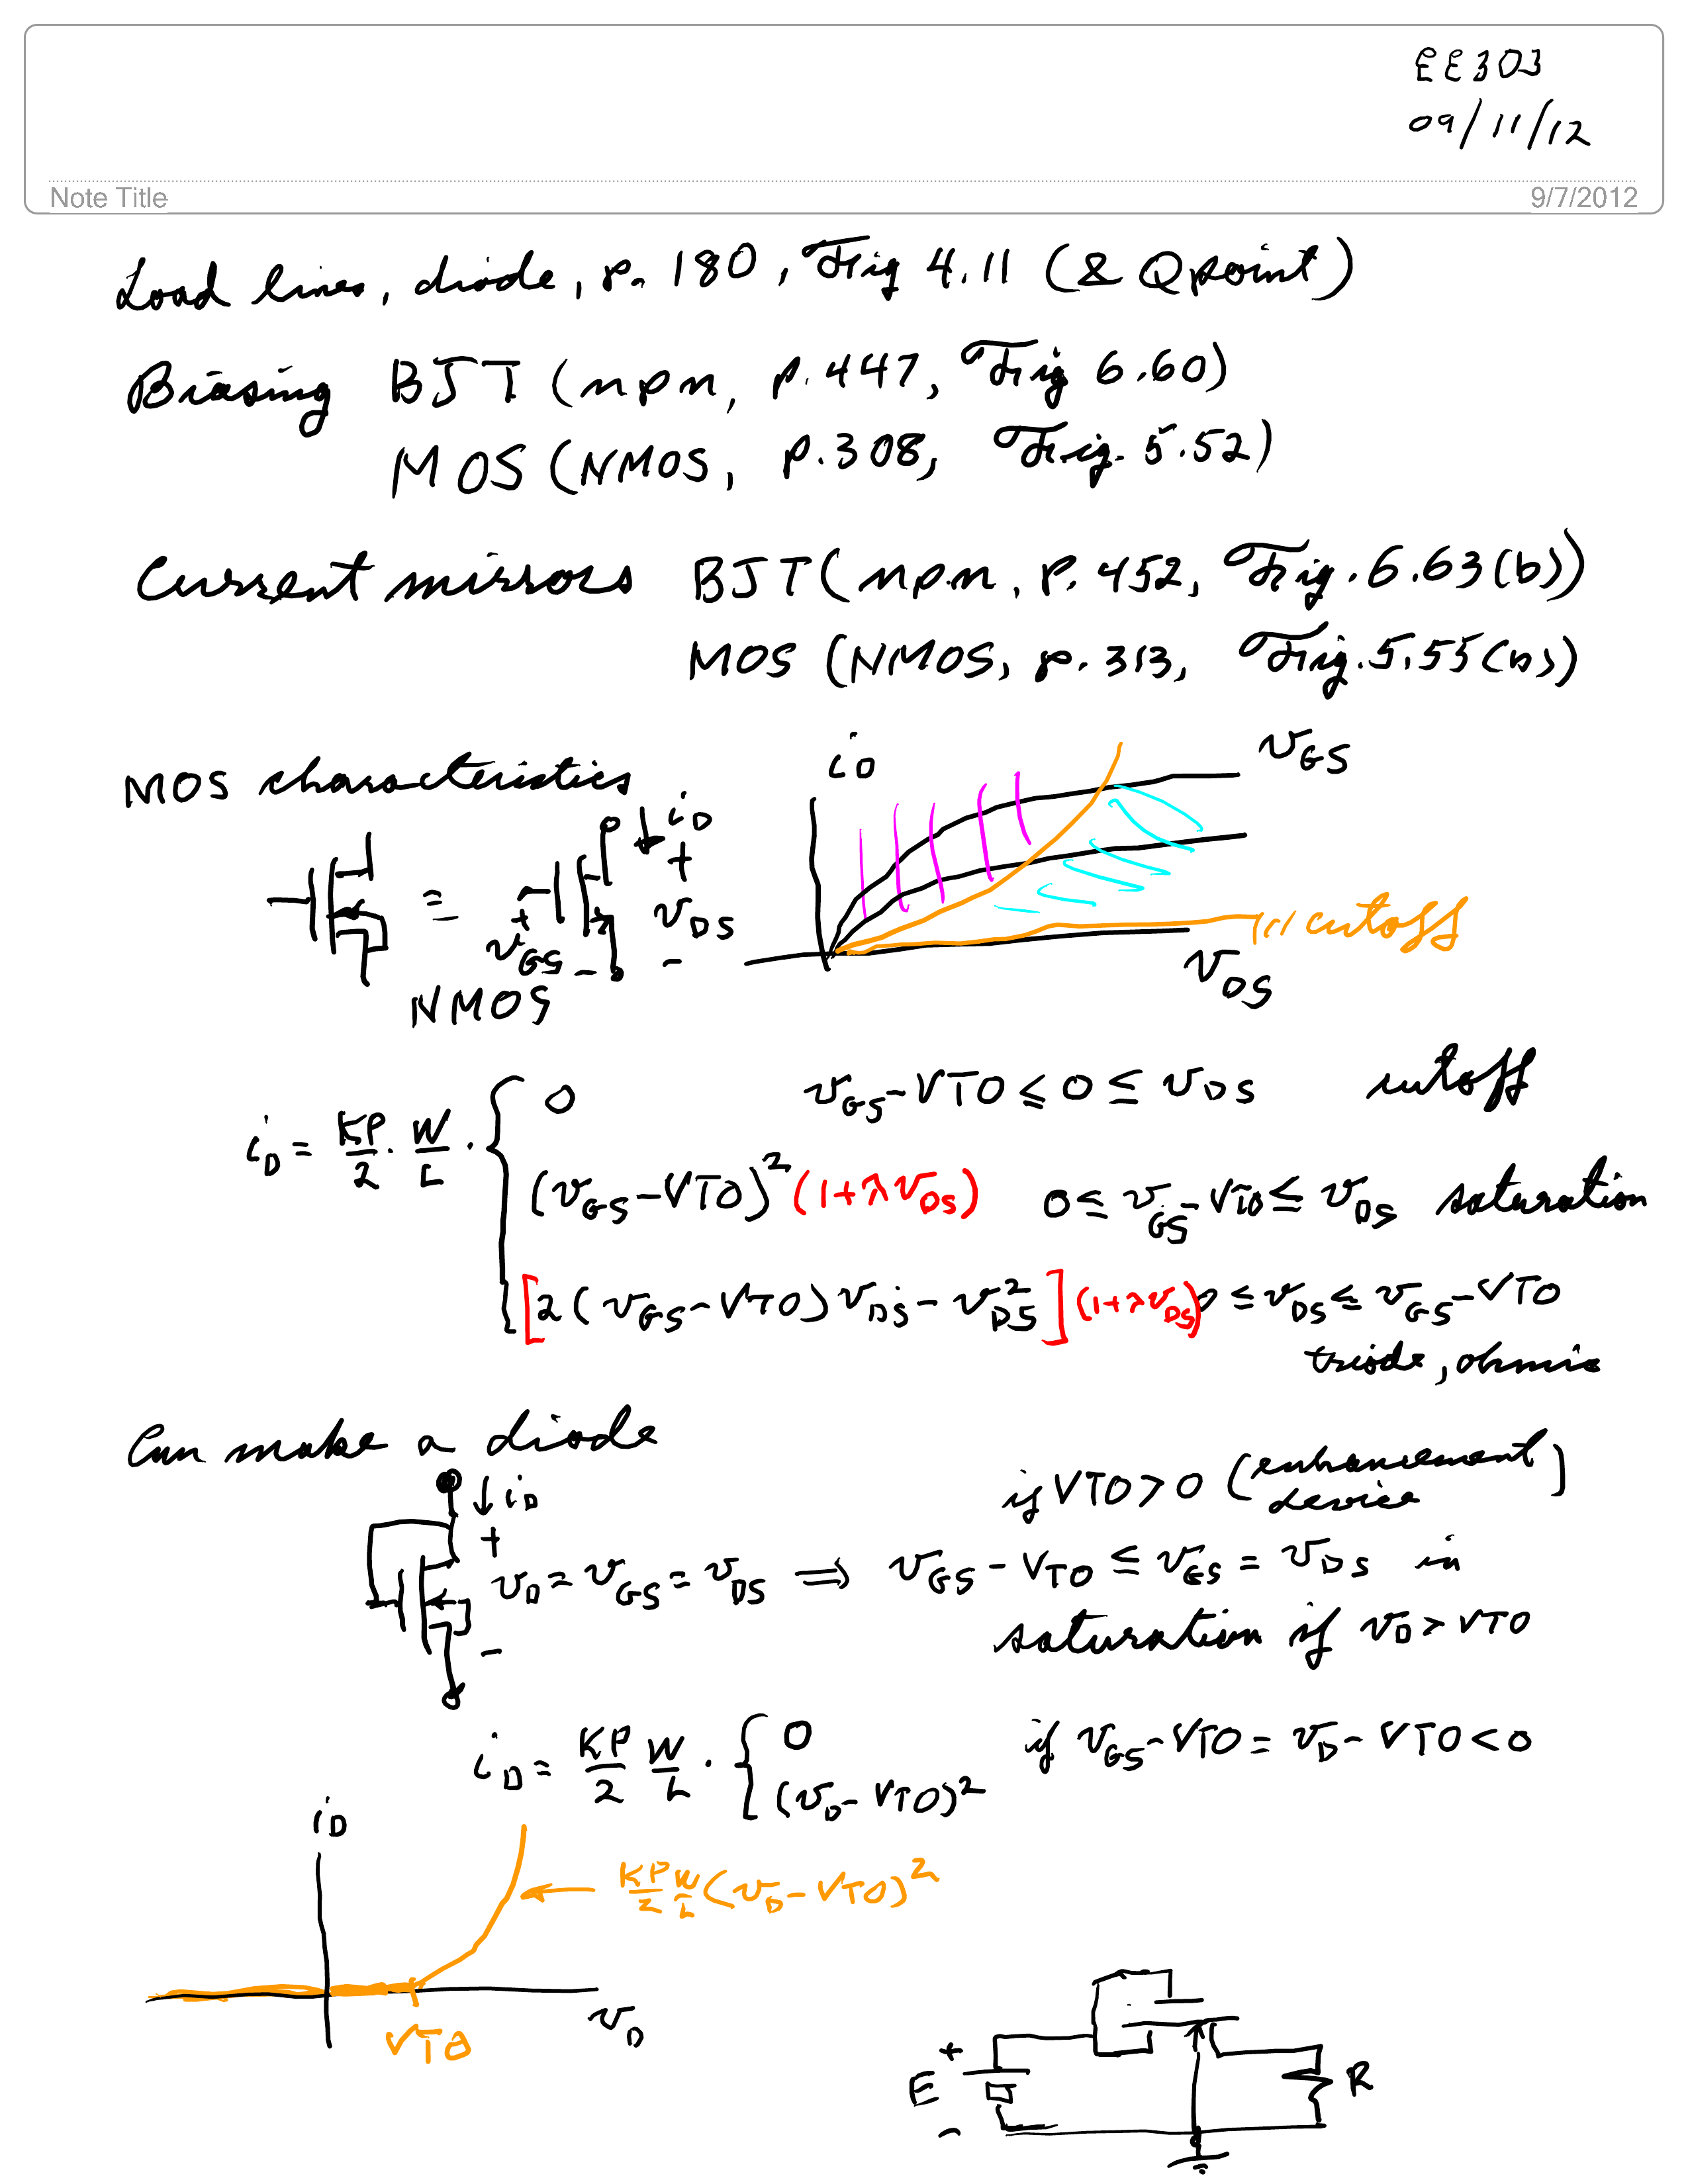 EE303
09/11/12
Note Title 9/7/2012
Load lines, diode, p. 180, Fig 4.11 (& Q point)
Biasing BJT (npn, p.447, Fig 6.60)
MOS (NMOS, p.308, Fig. 5.52)
Current mirrors BJT (npn, p. 452, Fig. 6.63(b))
MOS (NMOS, p. 313, Fig. 5.55(b))
MOS characteristics
iD vGS
= iD + vDS -
+ vGS -
NMOS
cutoff
vDS
iD = KP/2 · W/L ·
0 vGS-VTO ≤ 0 ≤ vDS cutoff
(vGS-VTO)² (1+λvDS) 0 ≤ vGS-VTO ≤ vDS saturation
[2(vGS-VTO)vDS - vDS²](1+λvDS) 0 ≤ vDS ≤ vGS-VTO
triode, ohmic
Can make a diode
if VTO > 0 (enhancement device)
iD
+ vD = vGS = vDS ⟹ vGS - VTO ≤ vGS = vDS in
- saturation if vD > VTO
iD = KP/2 W/L · { 0 if vGS-VTO = vD - VTO < 0
(vD - VTO)²
iD
KP/2 W/L (vD - VTO)²
VTO vD
+ E - R